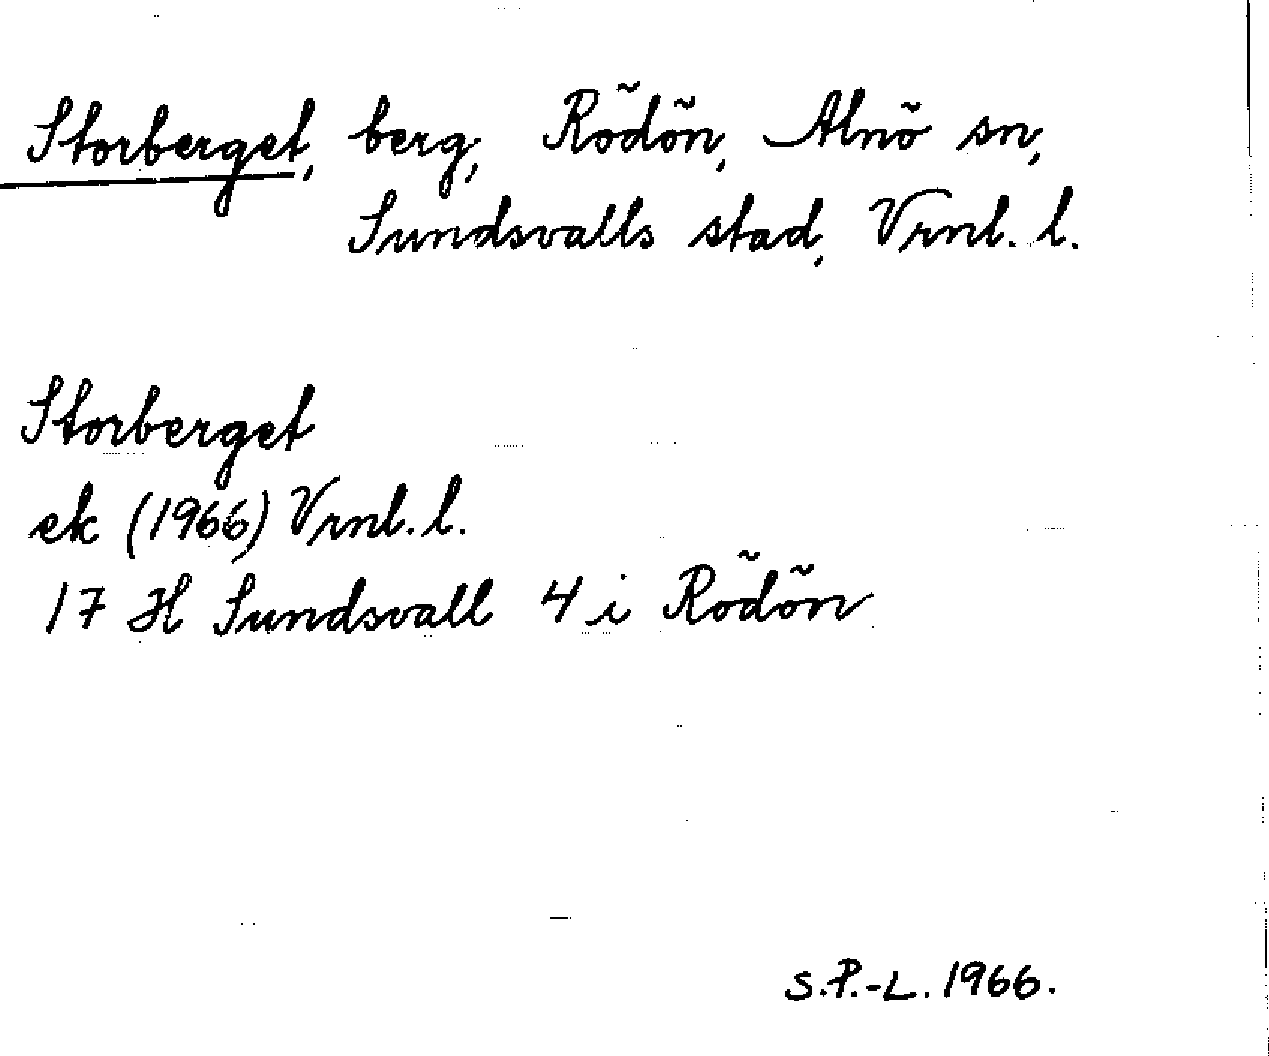 Storberget, berg, Rödön, Alnö sn,
Sundsvalls stad, Vrnl. l.
Storberget
ek (1966) Vrnl. l.
17 H Sundsvall 4 i Rödön
S.P.-L. 1966.